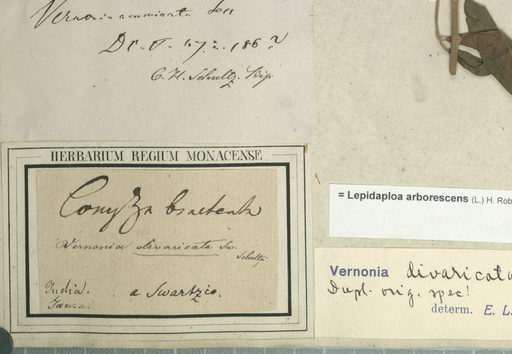 Vernonia acuminata Less
Dr. v. 17. 2. 186?
C. H. Schultz. Bip.
HERBARIUM REGIUM MONACENSE
Conyza bracteata
Vernonia divaricata Sw.
Schultz
India.
Jamai
a Swartzio.
= Lepidaploa arborescens (L.) H. Rob
Vernonia divaricata
Dupl. orig. spec!
determ. E. L.